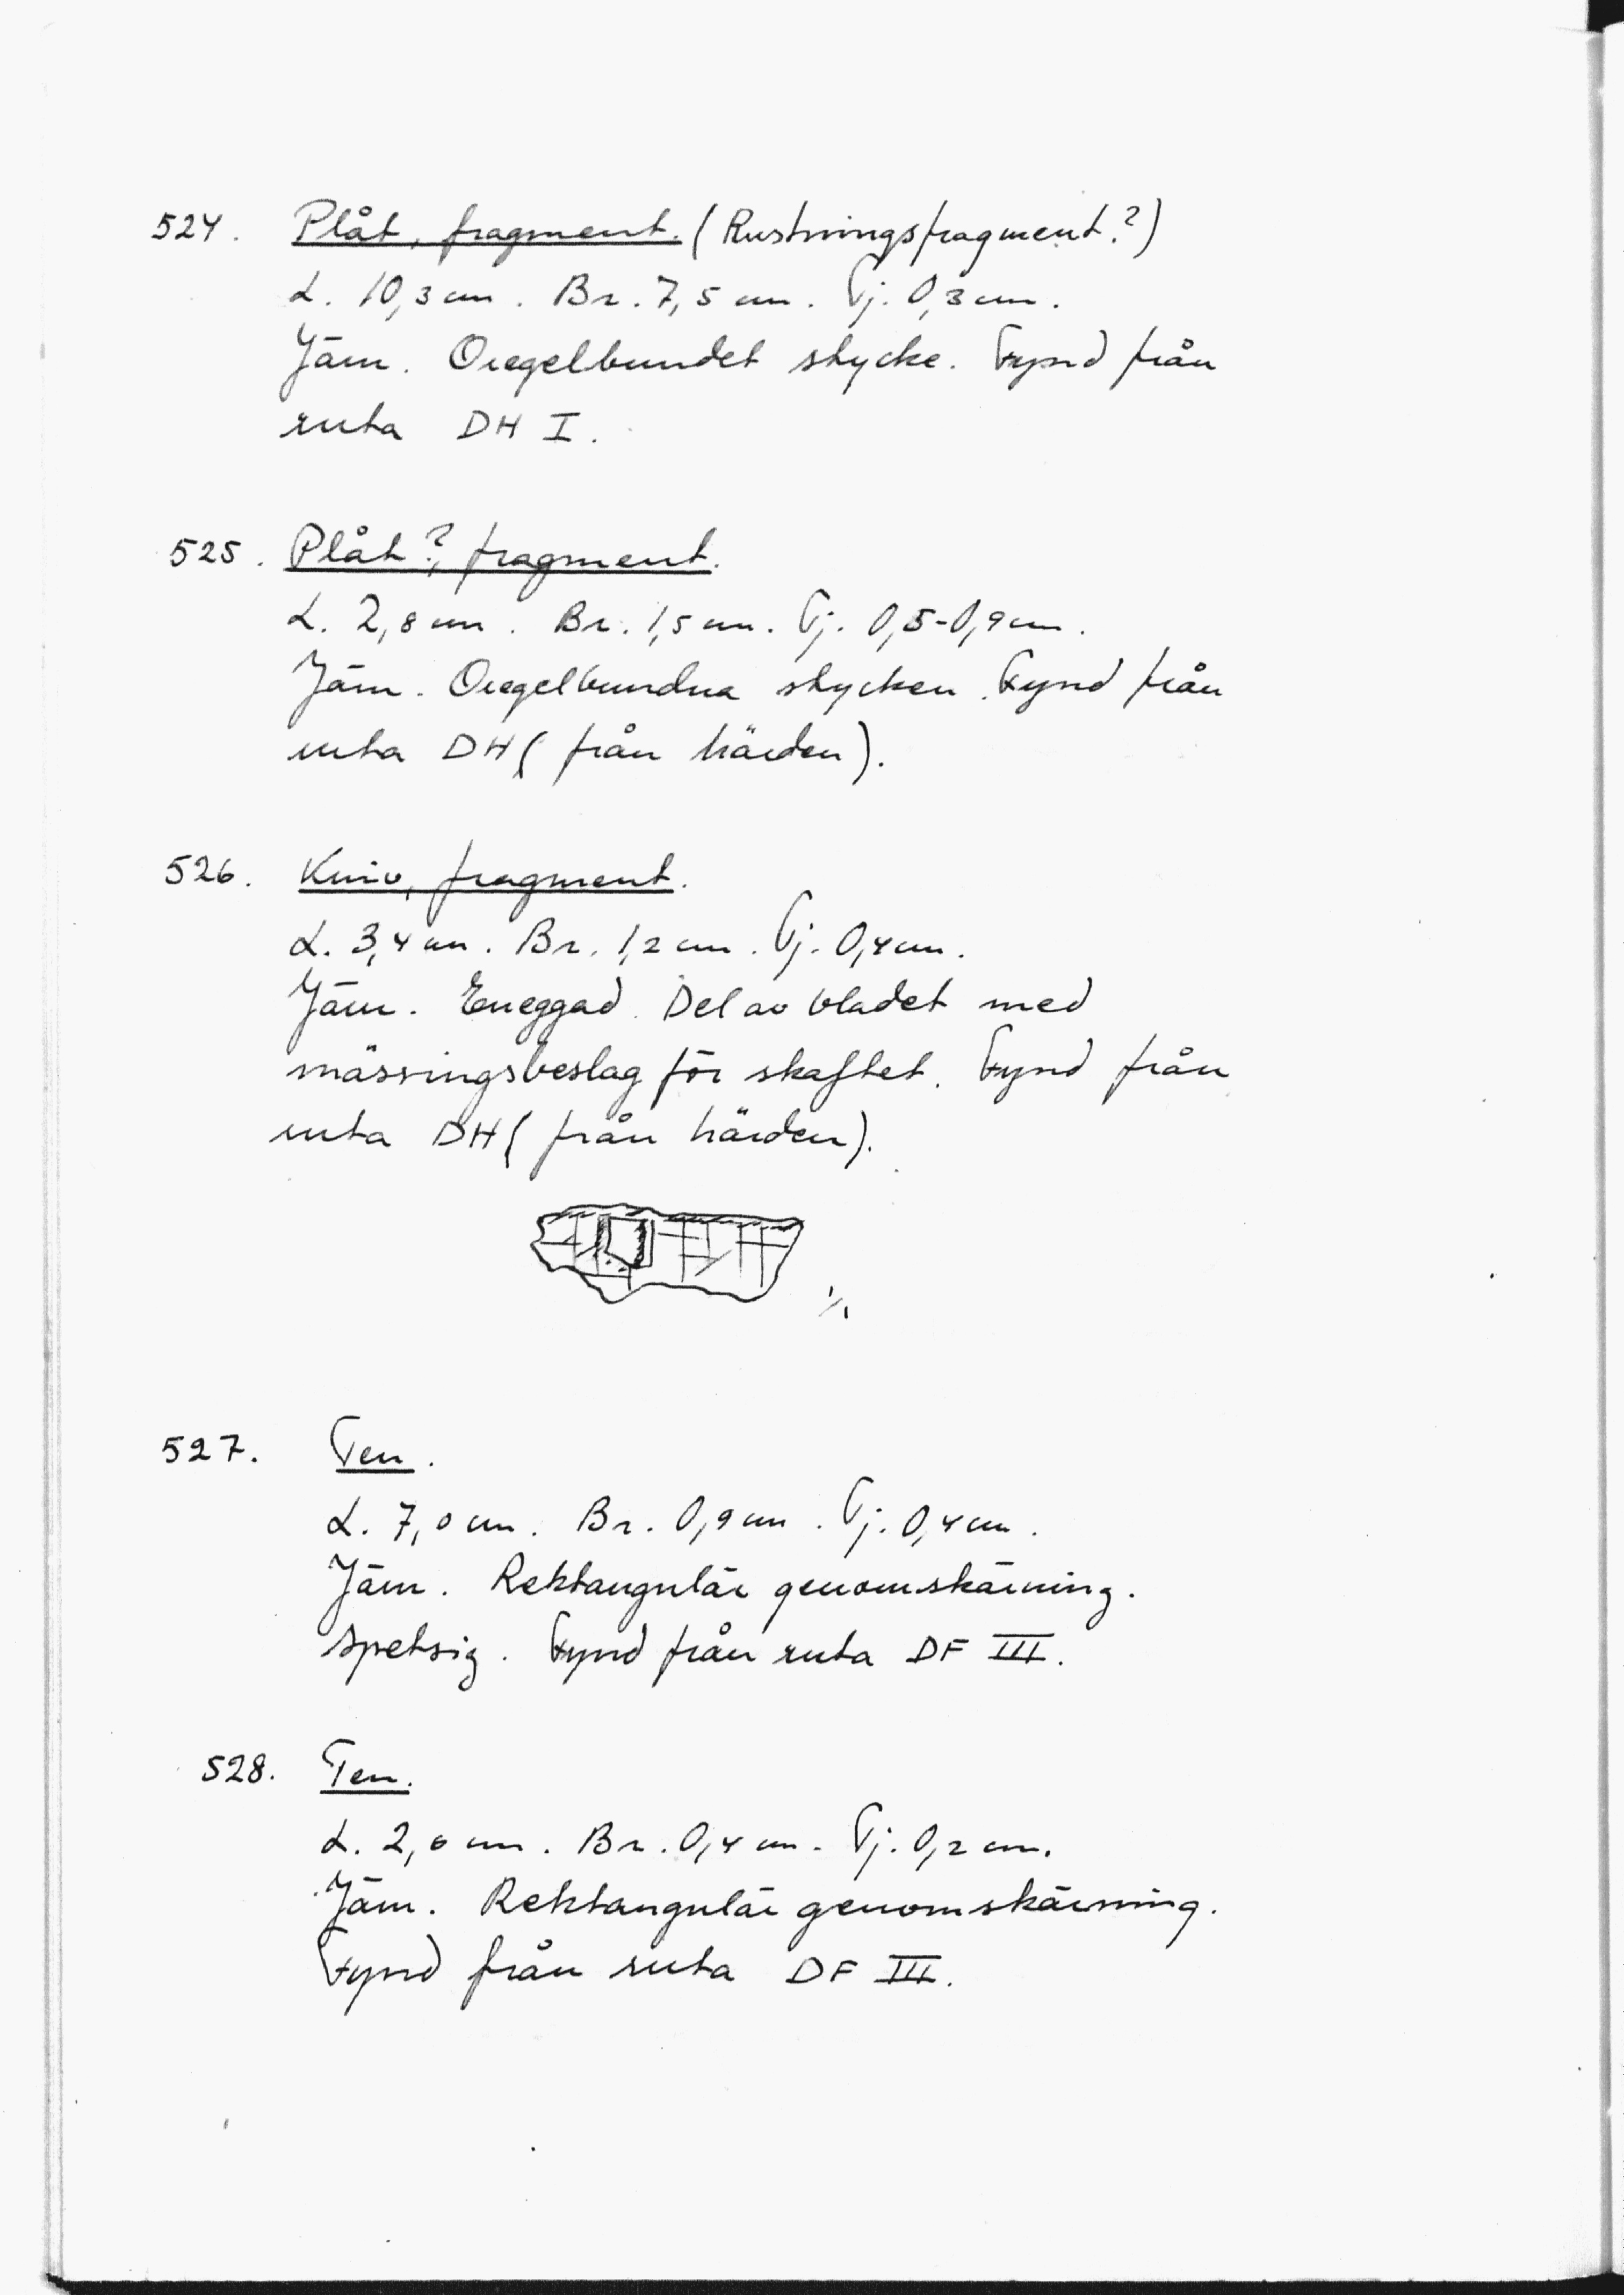 524. Plåt, fragment. (Rustningsfragment?)
L. 10,3 cm. Br. 7,5 cm. Tj. 0,3 cm.
Järn. Oregelbundet stycke. Fynd från
ruta DH I.
525. Plåt?, fragment.
L. 2,8 cm. Br. 1,5 cm. Tj. 0,5-0,9 cm.
Järn. Oregelbundna stycken. Fynd från
ruta DH (från härden).
526. Kniv, fragment.
L. 3,4 cm. Br. 1,2 cm. Tj. 0,4 cm.
Järn. Eneggad. Del av bladet med
mässingsbeslag för skaftet. Fynd från
ruta DH (från härden).
1/1
527. Ten.
L. 7,0 cm. Br. 0,9 cm. Tj. 0,4 cm.
Järn. Rektangulär genomskärning.
Spetsig. Fynd från ruta DF III.
528. Ten.
L. 2,0 cm. Br. 0,4 cm. Tj. 0,2 cm.
Järn. Rektangulär genomskärning.
Fynd från ruta DF III.